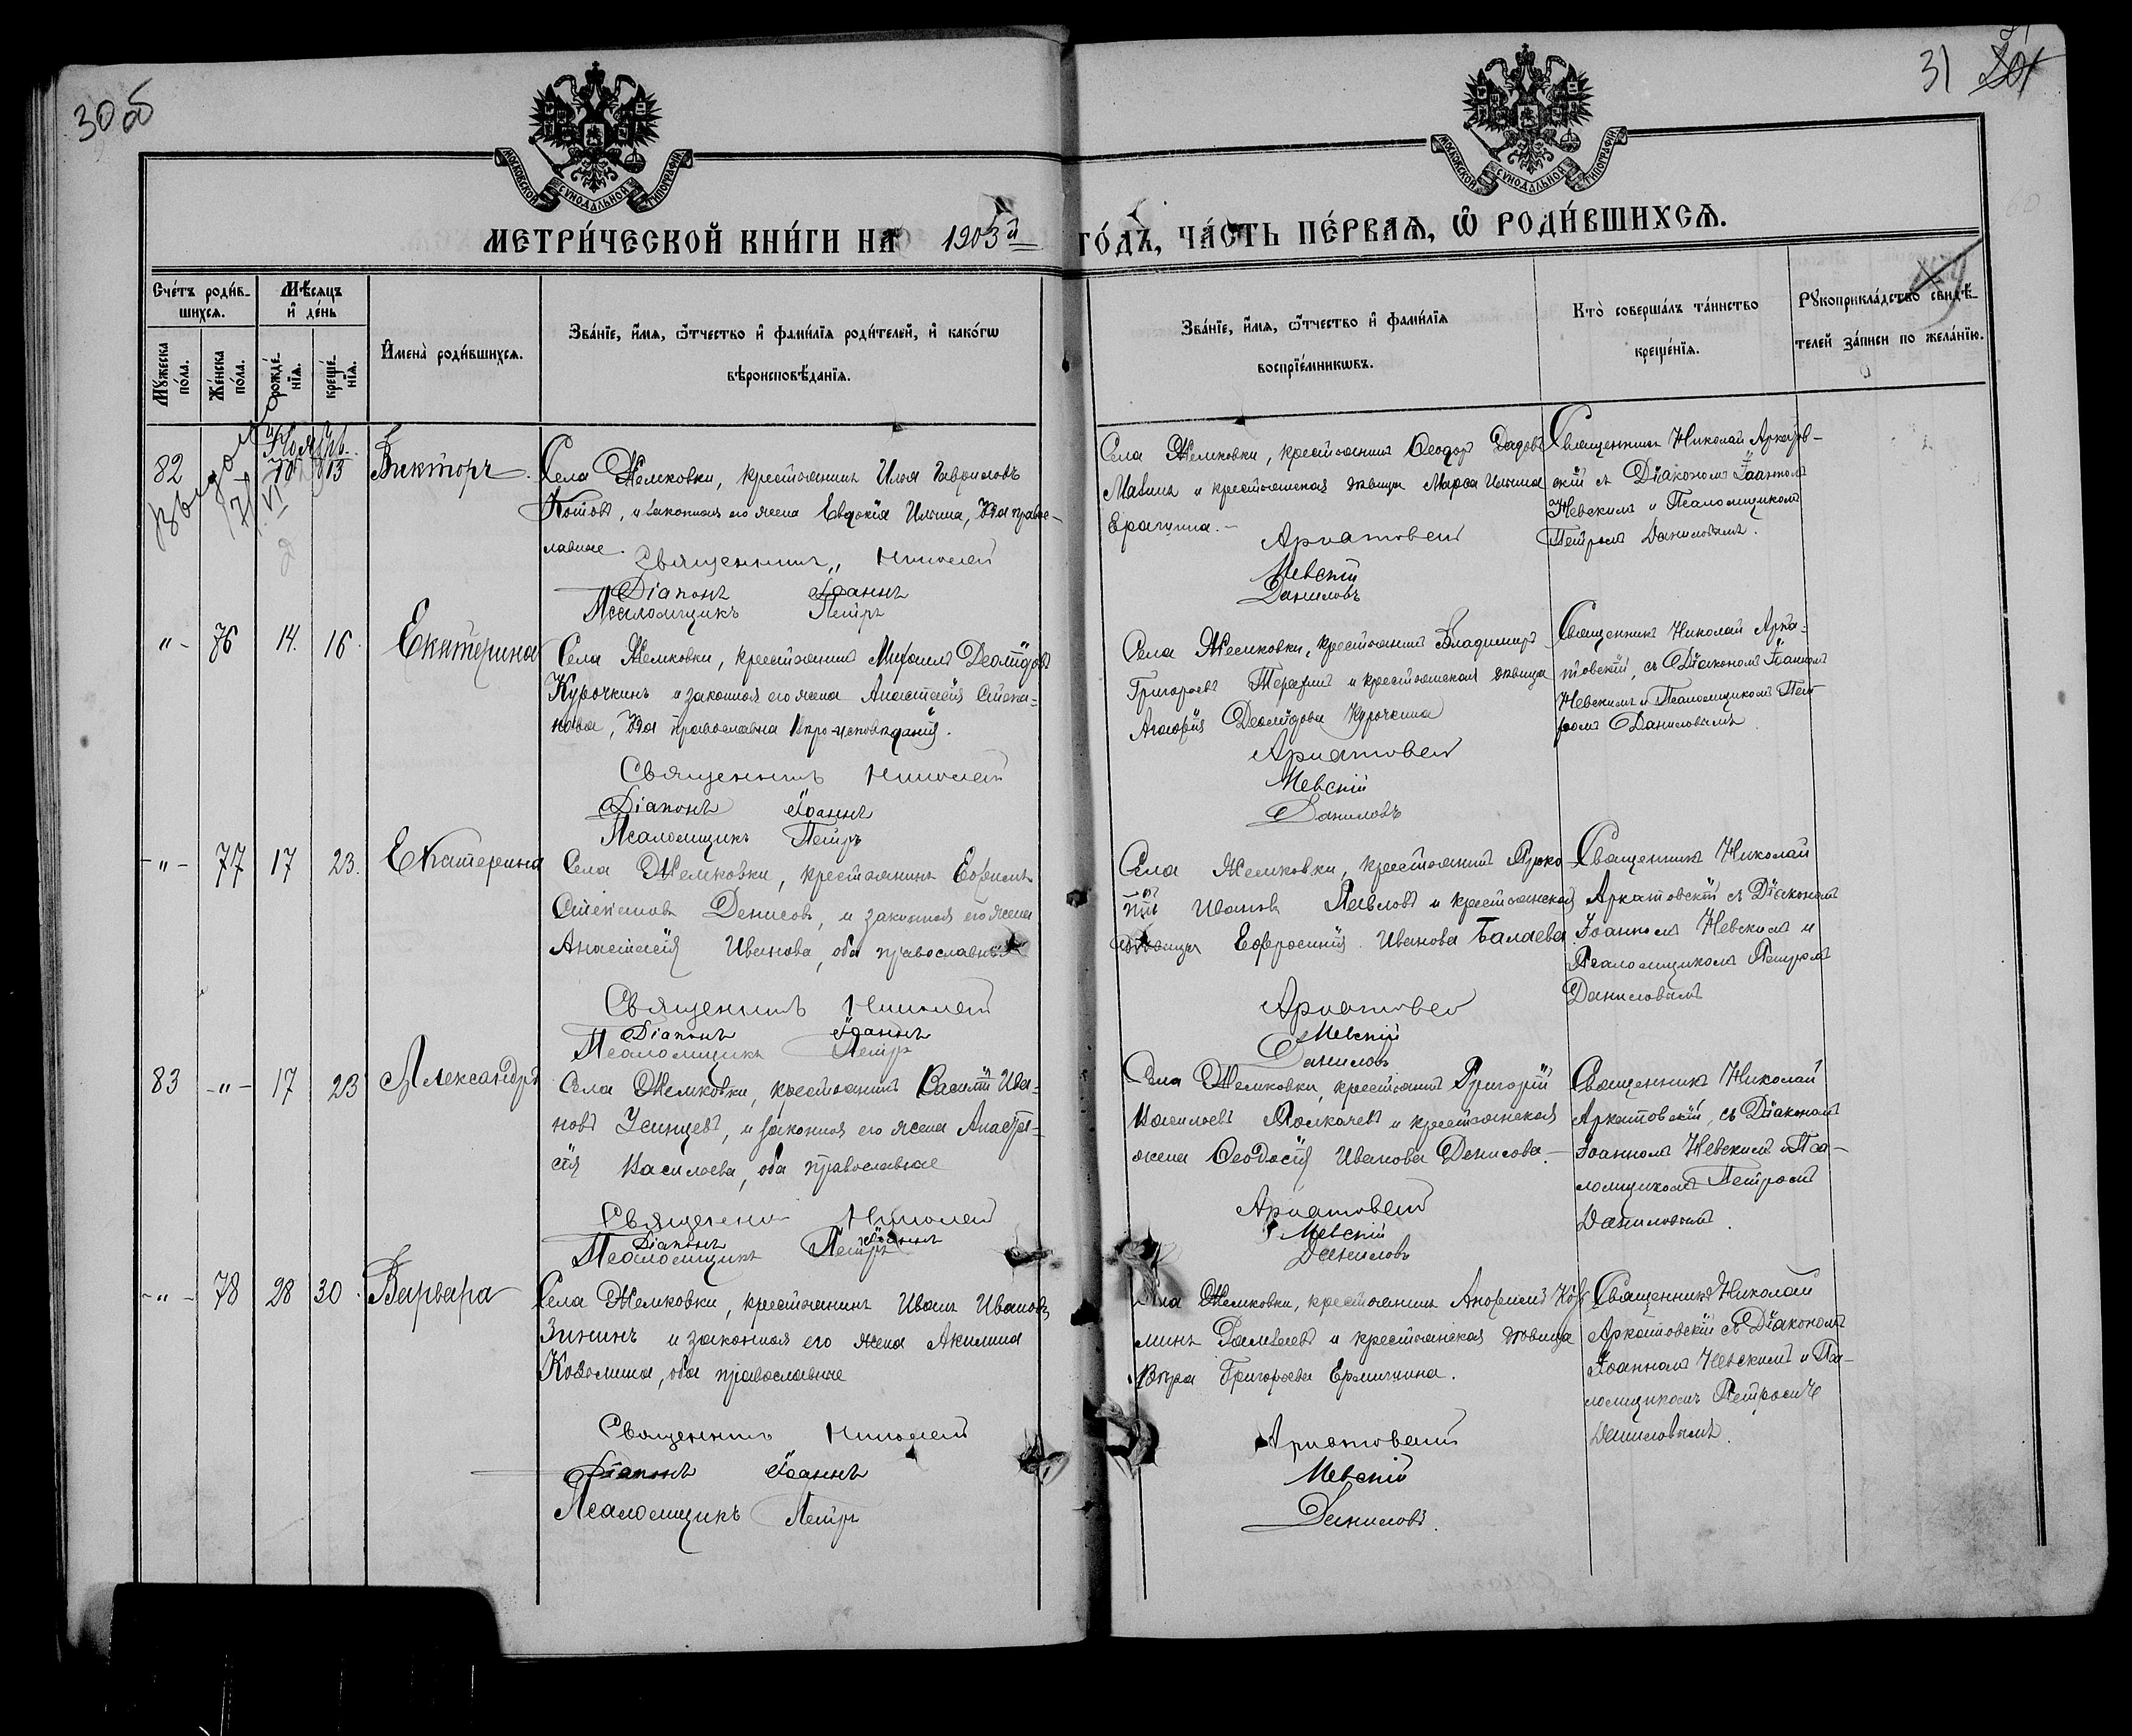 30 об
31
МОСКОВСКОЙ СѴНОДАЛЬНОЙ ТИПОГРАФІИ
МОСКОВСКОЙ СѴНОДАЛЬНОЙ ТИПОГРАФІИ
МЕТРИ́ЧЕСКОЙ КНИ́ГИ НА 1903й ГО́ДЪ, ЧА́СТЬ ПЕ́РВАѦ, Ѿ РОДИ́ВШИХСѦ.
Сче́тъ роди́в-
шихсѧ.
Мѣ́сѧцъ
и҆ де́нь
Мꙋ́жеска
по́ла.
Же́нска
по́ла.
рожде́-
нїѧ.
креще́-
нїѧ.
И҆мена̀ роди́вшихсѧ.
Зва́нїе, и҆́мѧ, ѻ҆́тчество и҆ фами́лїѧ роди́телей, и҆ како́гѡ
вѣроисповѣ́данїѧ.
Зва́нїе, и҆́мѧ, ѻ҆́тчество и҆ фами́лїѧ
воспрїе́мникѡвъ.
Кто̀ соверша́лъ та́инство
креще́нїѧ.
Рꙋкоприкла́дство свидѣ́-
телей за́писи по жела́нїю.
Ноябрь
82 10 13 Викторъ
Села Жемковки, крестьянинъ Илья Гавриловъ
Котовъ, и законная его жена Евдокія Ильина, оба право-
славные.
Священникъ Николай
Діаконъ Іоаннъ
Псаломщикъ Петръ
Села Жемковки, крестьянинъ Ѳеодоръ
и крестьянская дѣвица Марѳа Ильина
Аркатовскій
Невскій
Даниловъ
Священникъ Николай Аркатов-
скій съ Діакономъ Іоанномъ
Невскимъ и Псаломщикомъ
Петромъ Даниловымъ.
"- 76 14. 16. Екатерина
Села Жемковки, крестьянинъ Михаилъ Деомидовъ
Курочкинъ и законная его жена Анастасія Степа-
нова, оба православна вѣро-исповѣданія.
Священникъ Николай
Діаконъ Іоаннъ
Псаломщикъ Петръ
Села Жемковки, крестьянинъ Владимиръ
Григорьевъ и крестьянская дѣвица
Агафія Деомидова Курочкина
Аркатовскій
Невскій
Даниловъ
Священникъ Николай Арка-
товскій, съ Діакономъ Іоанномъ
Невскимъ и Псаломщикомъ Пет-
ромъ Даниловымъ
-"- 77 17 23. Екатерина
Села Жемковки, крестьянинъ Ефимъ
Степановъ Денисовъ, и законная его жена
Анастасія Иванова, оба православные
Священникъ Николай
Діаконъ Іоаннъ
Псаломщикъ Петръ
Села Жемковки, крестьянинъ Проко-
пій Ивановъ Павловъ и крестьянская
дѣвица Евфросинія Иванова Балаева
Аркатовскій
Невскій
Даниловъ
Священникъ Николай
Аркатовскій съ Діакономъ
Іоанномъ Невскимъ и
Псаломщикомъ Петромъ
Даниловымъ
83 -"- 17 23 Александръ
Села Жемковки, крестьянинъ Василій Ива-
новъ Усинцевъ, и законная его жена Анаста-
сія Васильева, оба православные
Священникъ Николай
Діаконъ Іоаннъ
Псаломщикъ Петръ
Села Жемковки, крестьянинъ Григорій
Васильевъ Толкачевъ и крестьянская
жена Ѳеодосія Иванова Денисова.
Аркатовскій
Невскій
Даниловъ
Священникъ Николай
Аркатовскій, съ Діакономъ
Іоанномъ Невскимъ и Пса-
ломщикомъ Петромъ
Даниловымъ.
-"- 78 28 30. Варвара
Села Жемковки, крестьянинъ Иванъ Ивановъ
Зининъ и законная его жена Акилина
Козьмина, оба православные
Священникъ Николай
Діаконъ Іоаннъ
Псаломщикъ Петръ
Села Жемковки, крестьянинъ
и крестьянская дѣвица
Вѣра Григорьева
Аркатовскій
Невскій
Даниловъ.
Священникъ Николай
Аркатовскій съ Діакономъ
Іоанномъ Невскимъ и Пса-
ломщикомъ Петромъ
Даниловымъ.